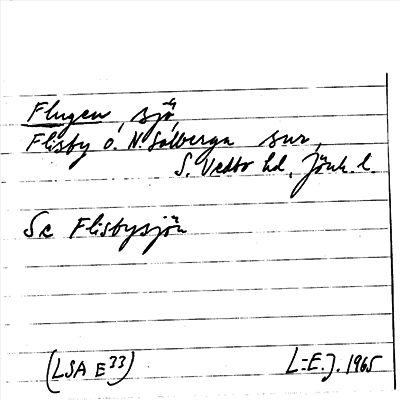 Flugen, sjö,
Flisby o. N. Solberga snr,
S. Vedbo hd, Jönk. l.
Se Flisbysjön
(LSA E 33) L-E. J. 1965